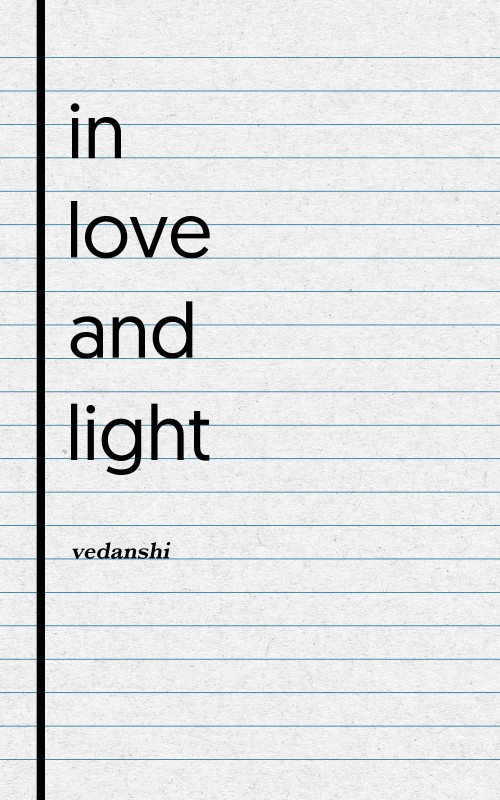 in
love
and
light
vedanshi